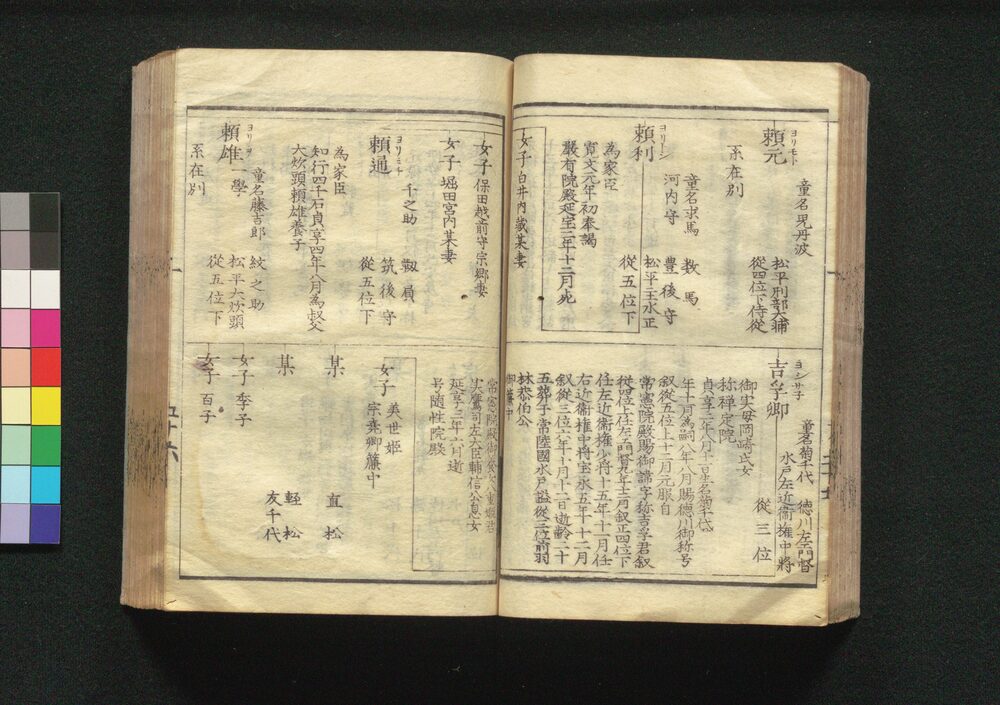 頼元
ヨリモト
童名児丹波
松平刑部大輔
従四位下侍従
系在別
頼利
ヨリトシ
童名求馬
数馬
河内守
豊後守
松平主水正
従五位下
為家臣
寛文元年初奉謁
嚴有院殿延宝二年十二月死
女子 白井内蔵某妻
吉孚卿
ヨシザネ
童名菊千代
徳川左衛門督
水戸左近衛権中将
従三位
御実母岡崎氏女
称禅定院
貞享二年八月十一日生名菊千代
年十月為嗣八年八月賜徳川御称号
叙従五位上十二月元服自
常憲院殿賜御諱字称吉孚君叙
従四位上任左衛門督九年十二月叙正四位下
任左近衛権少将十五年十一月任
右近衛権中将宝永五年十二月
叙従三位六年十月十一日逝齢二十
五葬于常陸國水戸謚従三位前羽
林恭伯公
御簾中
女子 保田越前守宗郷妻
女子 堀田宮内某妻
頼通
ヨリミチ
千之助
靱員
筑後守
従五位下
為家臣
知行四千石貞享四年八月為叔父
大炊頭頼雄養子
頼雄
ヨリヲ
童名藤吉郎
紋之助
一學
松平大炊頭
従五位下
系在別
常憲院殿御養女八重姫君
実鷹司左大臣輔信公息女
延享三年六月逝
号随性院殿
女子
美世姫
宗堯卿簾中
某
直松
某
軽松
友千代
女子 季子
女子 百子
五十六